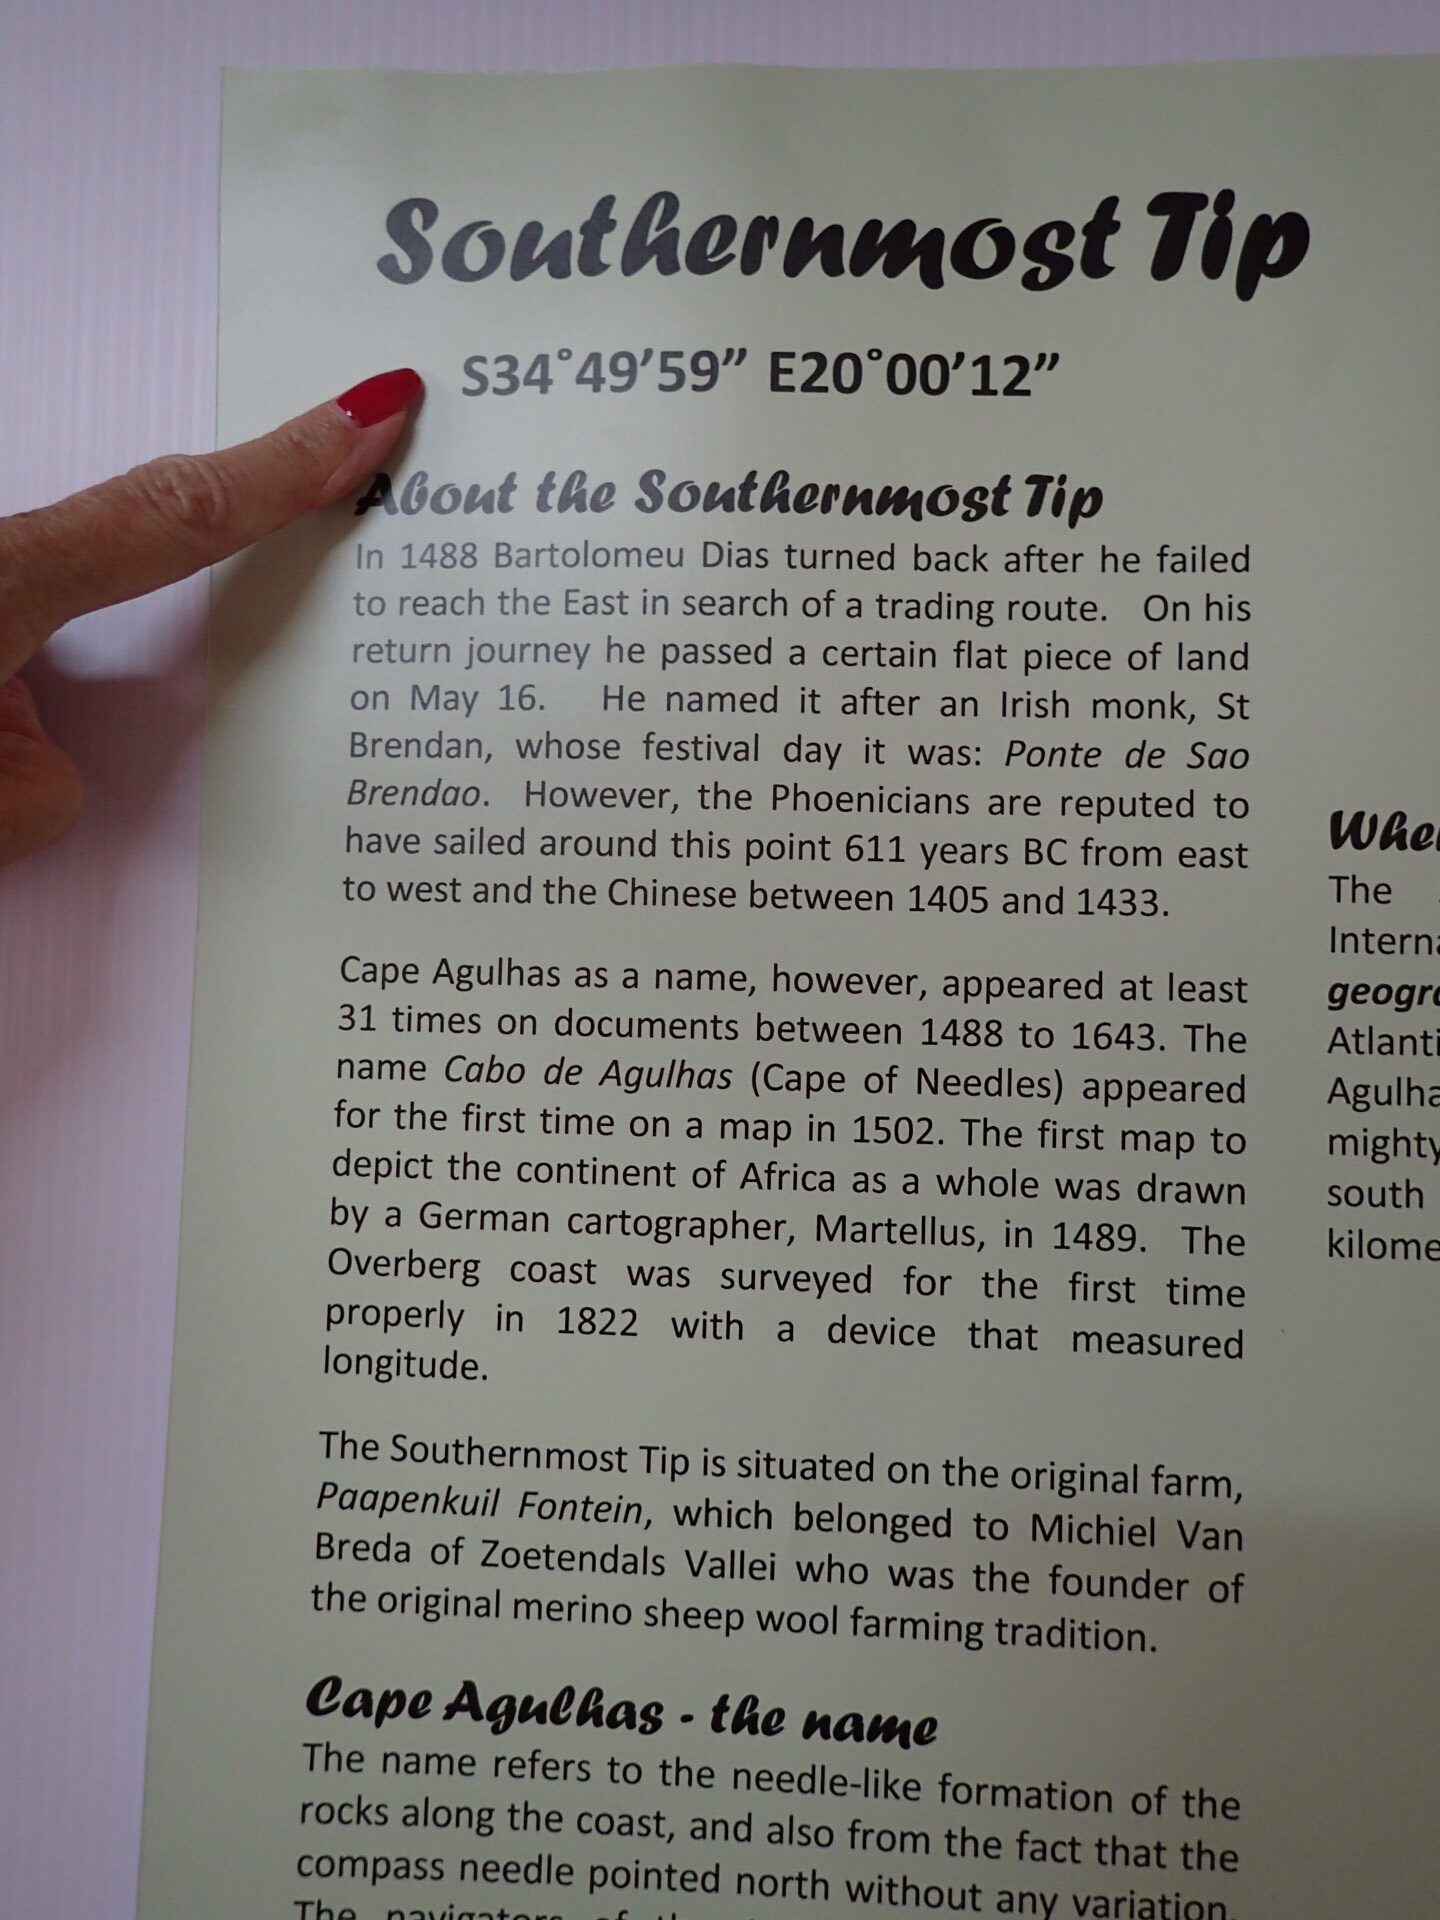 Southernmost Tip
S34°49’59” E20°00’12”
About the Southernmost Tip
In 1488 Bartolomeu Dias turned back after he failed
to reach the East in search of a trading route. On his
return journey he passed a certain flat piece of land
on May 16. He named it after an Irish monk, St
Brendan, whose festival day it was: Ponte de Sao
Brendao. However, the Phoenicians are reputed to
have sailed around this point 611 years BC from east
to west and the Chinese between 1405 and 1433.
Cape Agulhas as a name, however, appeared at least
31 times on documents between 1488 to 1643. The
name Cabo de Agulhas (Cape of Needles) appeared
for the first time on a map in 1502. The first map to
depict the continent of Africa as a whole was drawn
by a German cartographer, Martellus, in 1489. The
Overberg coast was surveyed for the first time
properly in 1822 with a device that measured
longitude.
The Southernmost Tip is situated on the original farm,
Paapenkuil Fontein, which belonged to Michiel Van
Breda of Zoetendals Vallei who was the founder of
the original merino sheep wool farming tradition.
Cape Agulhas - the name
The name refers to the needle-like formation of the
rocks along the coast, and also from the fact that the
compass needle pointed north without any variation.
The navigators of
The
mighty
south